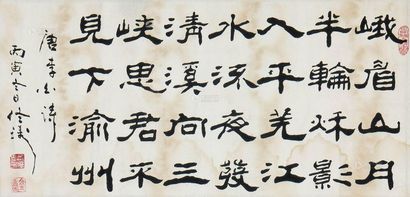 峨眉山月
半輪秋影
入平羌江
水流夜發
清溪向三
峽思君不
見下渝州
唐李白詩
丙寅冬日